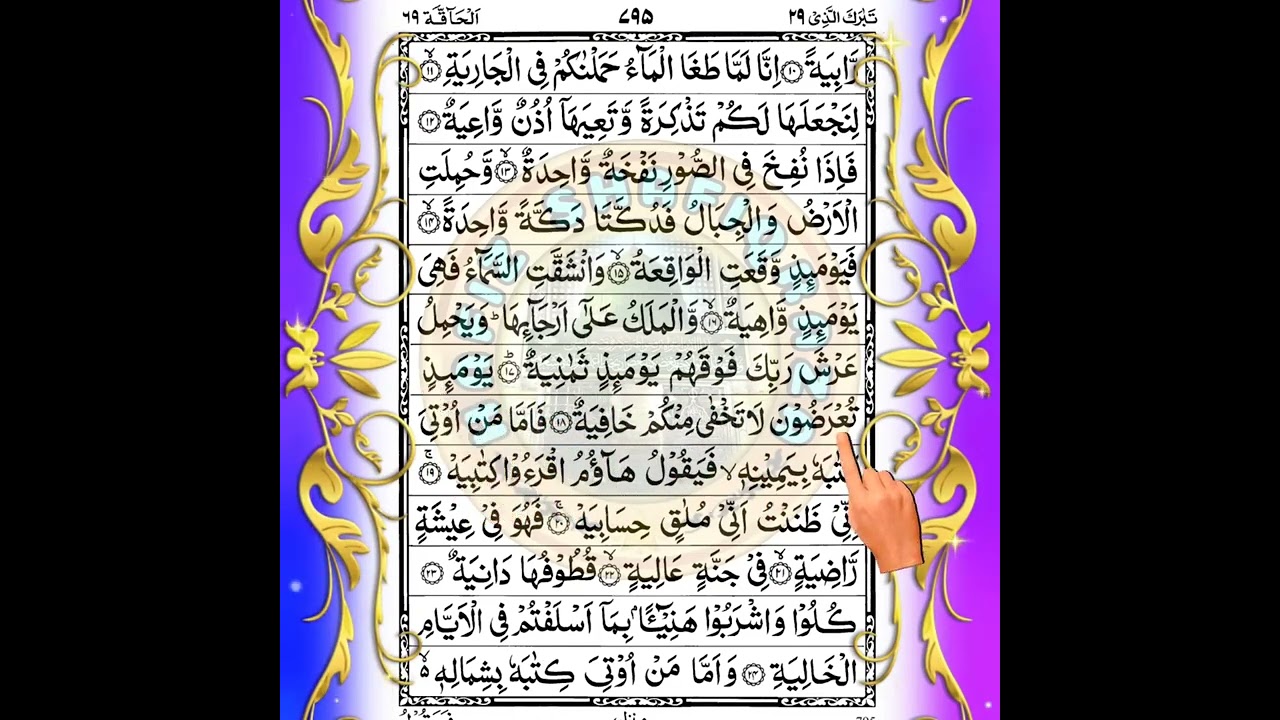 تَبٰرَكَ الَّذِیْ ۲۹
۷۹۵
اَلْحَآقَّة ۶۹
رَّابِیَةً ۝۱۰ اِنَّا لَمَّا طَغَا الْمَآءُ حَمَلْنٰكُمْ فِی الْجَارِیَةِ ۝۱۱ۙ
لِنَجْعَلَهَا لَكُمْ تَذْكِرَةً وَّتَعِیَهَاۤ اُذُنٌ وَّاعِیَةٌ ۝۱۲
فَاِذَا نُفِخَ فِی الصُّوْرِ نَفْخَةٌ وَّاحِدَةٌ ۝۱۳ۙ وَّحُمِلَتِ
الْاَرْضُ وَالْجِبَالُ فَدُكَّتَا دَكَّةً وَّاحِدَةً ۝۱۴ۙ
فَیَوْمَىِٕذٍ وَّقَعَتِ الْوَاقِعَةُ ۝۱۵ۙ وَانْشَقَّتِ السَّمَآءُ فَهِیَ
یَوْمَىِٕذٍ وَّاهِیَةٌ ۝۱۶ۙ وَّالْمَلَكُ عَلٰۤی اَرْجَآىِٕهَا ؕ وَیَحْمِلُ
عَرْشَ رَبِّكَ فَوْقَهُمْ یَوْمَىِٕذٍ ثَمٰنِیَةٌ ۝۱۷ؕ یَوْمَىِٕذٍ
تُعْرَضُوْنَ لَا تَخْفٰی مِنْكُمْ خَافِیَةٌ ۝۱۸ فَاَمَّا مَنْ اُوْتِیَ
كِتٰبَهٗ بِیَمِیْنِهٖ ۙ فَیَقُوْلُ هَآؤُمُ اقْرَءُوْا كِتٰبِیَهْ ۝۱۹ۚ
اِنِّیْ ظَنَنْتُ اَنِّیْ مُلٰقٍ حِسَابِیَهْ ۝۲۰ۚ فَهُوَ فِیْ عِیْشَةٍ
رَّاضِیَةٍ ۝۲۱ۙ فِیْ جَنَّةٍ عَالِیَةٍ ۝۲۲ۙ قُطُوْفُهَا دَانِیَةٌ ۝۲۳
كُلُوْا وَاشْرَبُوْا هَنِیْٓـًٔۢا بِمَاۤ اَسْلَفْتُمْ فِی الْاَیَّامِ
الْخَالِیَةِ ۝۲۴ وَاَمَّا مَنْ اُوْتِیَ كِتٰبَهٗ بِشِمَالِهٖ ۙ۬